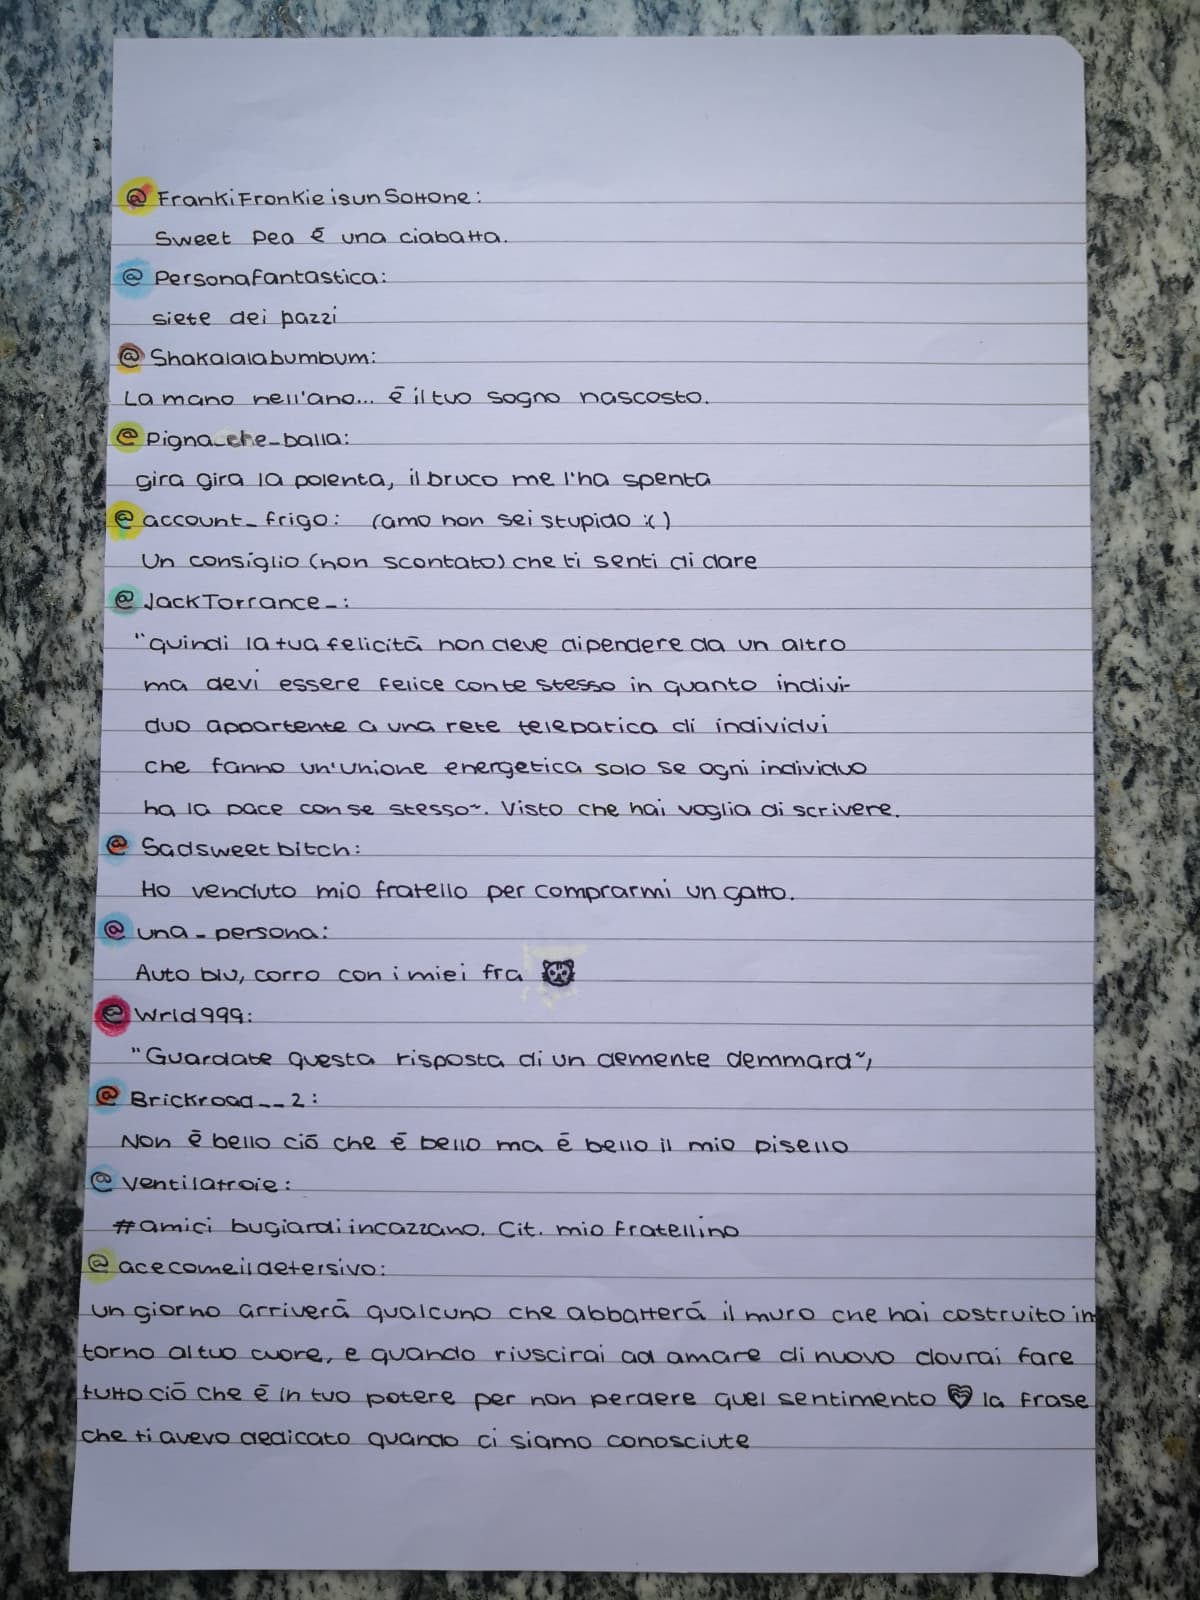 @FrankiFronkieisunSottone:
Sweet Pea è una ciabatta.
@Personafantastica:
siete dei pazzi
@Shakalalabumbum:
La mano nell'ano... è il tuo sogno nascosto.
@Pigna_che_balla:
gira gira la polenta, il bruco me l'ha spenta
@account_frigo: (amo non sei stupido :( )
Un consiglio (non scontato) che ti senti di dare
@JackTorrance_:
"quindi la tua felicità non deve dipendere da un altro
ma devi essere felice con te stesso in quanto indivi-
duo appartente a una rete telepatica di individui
che fanno un'unione energetica solo se ogni individuo
ha la pace con se stesso". Visto che hai voglia di scrivere.
@Sadsweetbitch:
Ho venduto mio fratello per comprarmi un gatto.
@una_persona:
Auto blu, corro con i miei fra 🐯
@Wrld999:
"Guardate questa risposta di un demente demmard",
@Brickroad__2:
Non è bello ciò che è bello ma è bello il mio pisello
@ventilatroie:
#amici bugiardi incazzano. Cit. mio fratellino
@acecomeildetersivo:
un giorno arriverà qualcuno che abbatterà il muro che hai costruito in
torno al tuo cuore, e quando riuscirai ad amare di nuovo dovrai fare
tutto ciò che è in tuo potere per non perdere quel sentimento ♥ la frase
che ti avevo dedicato quando ci siamo conosciute